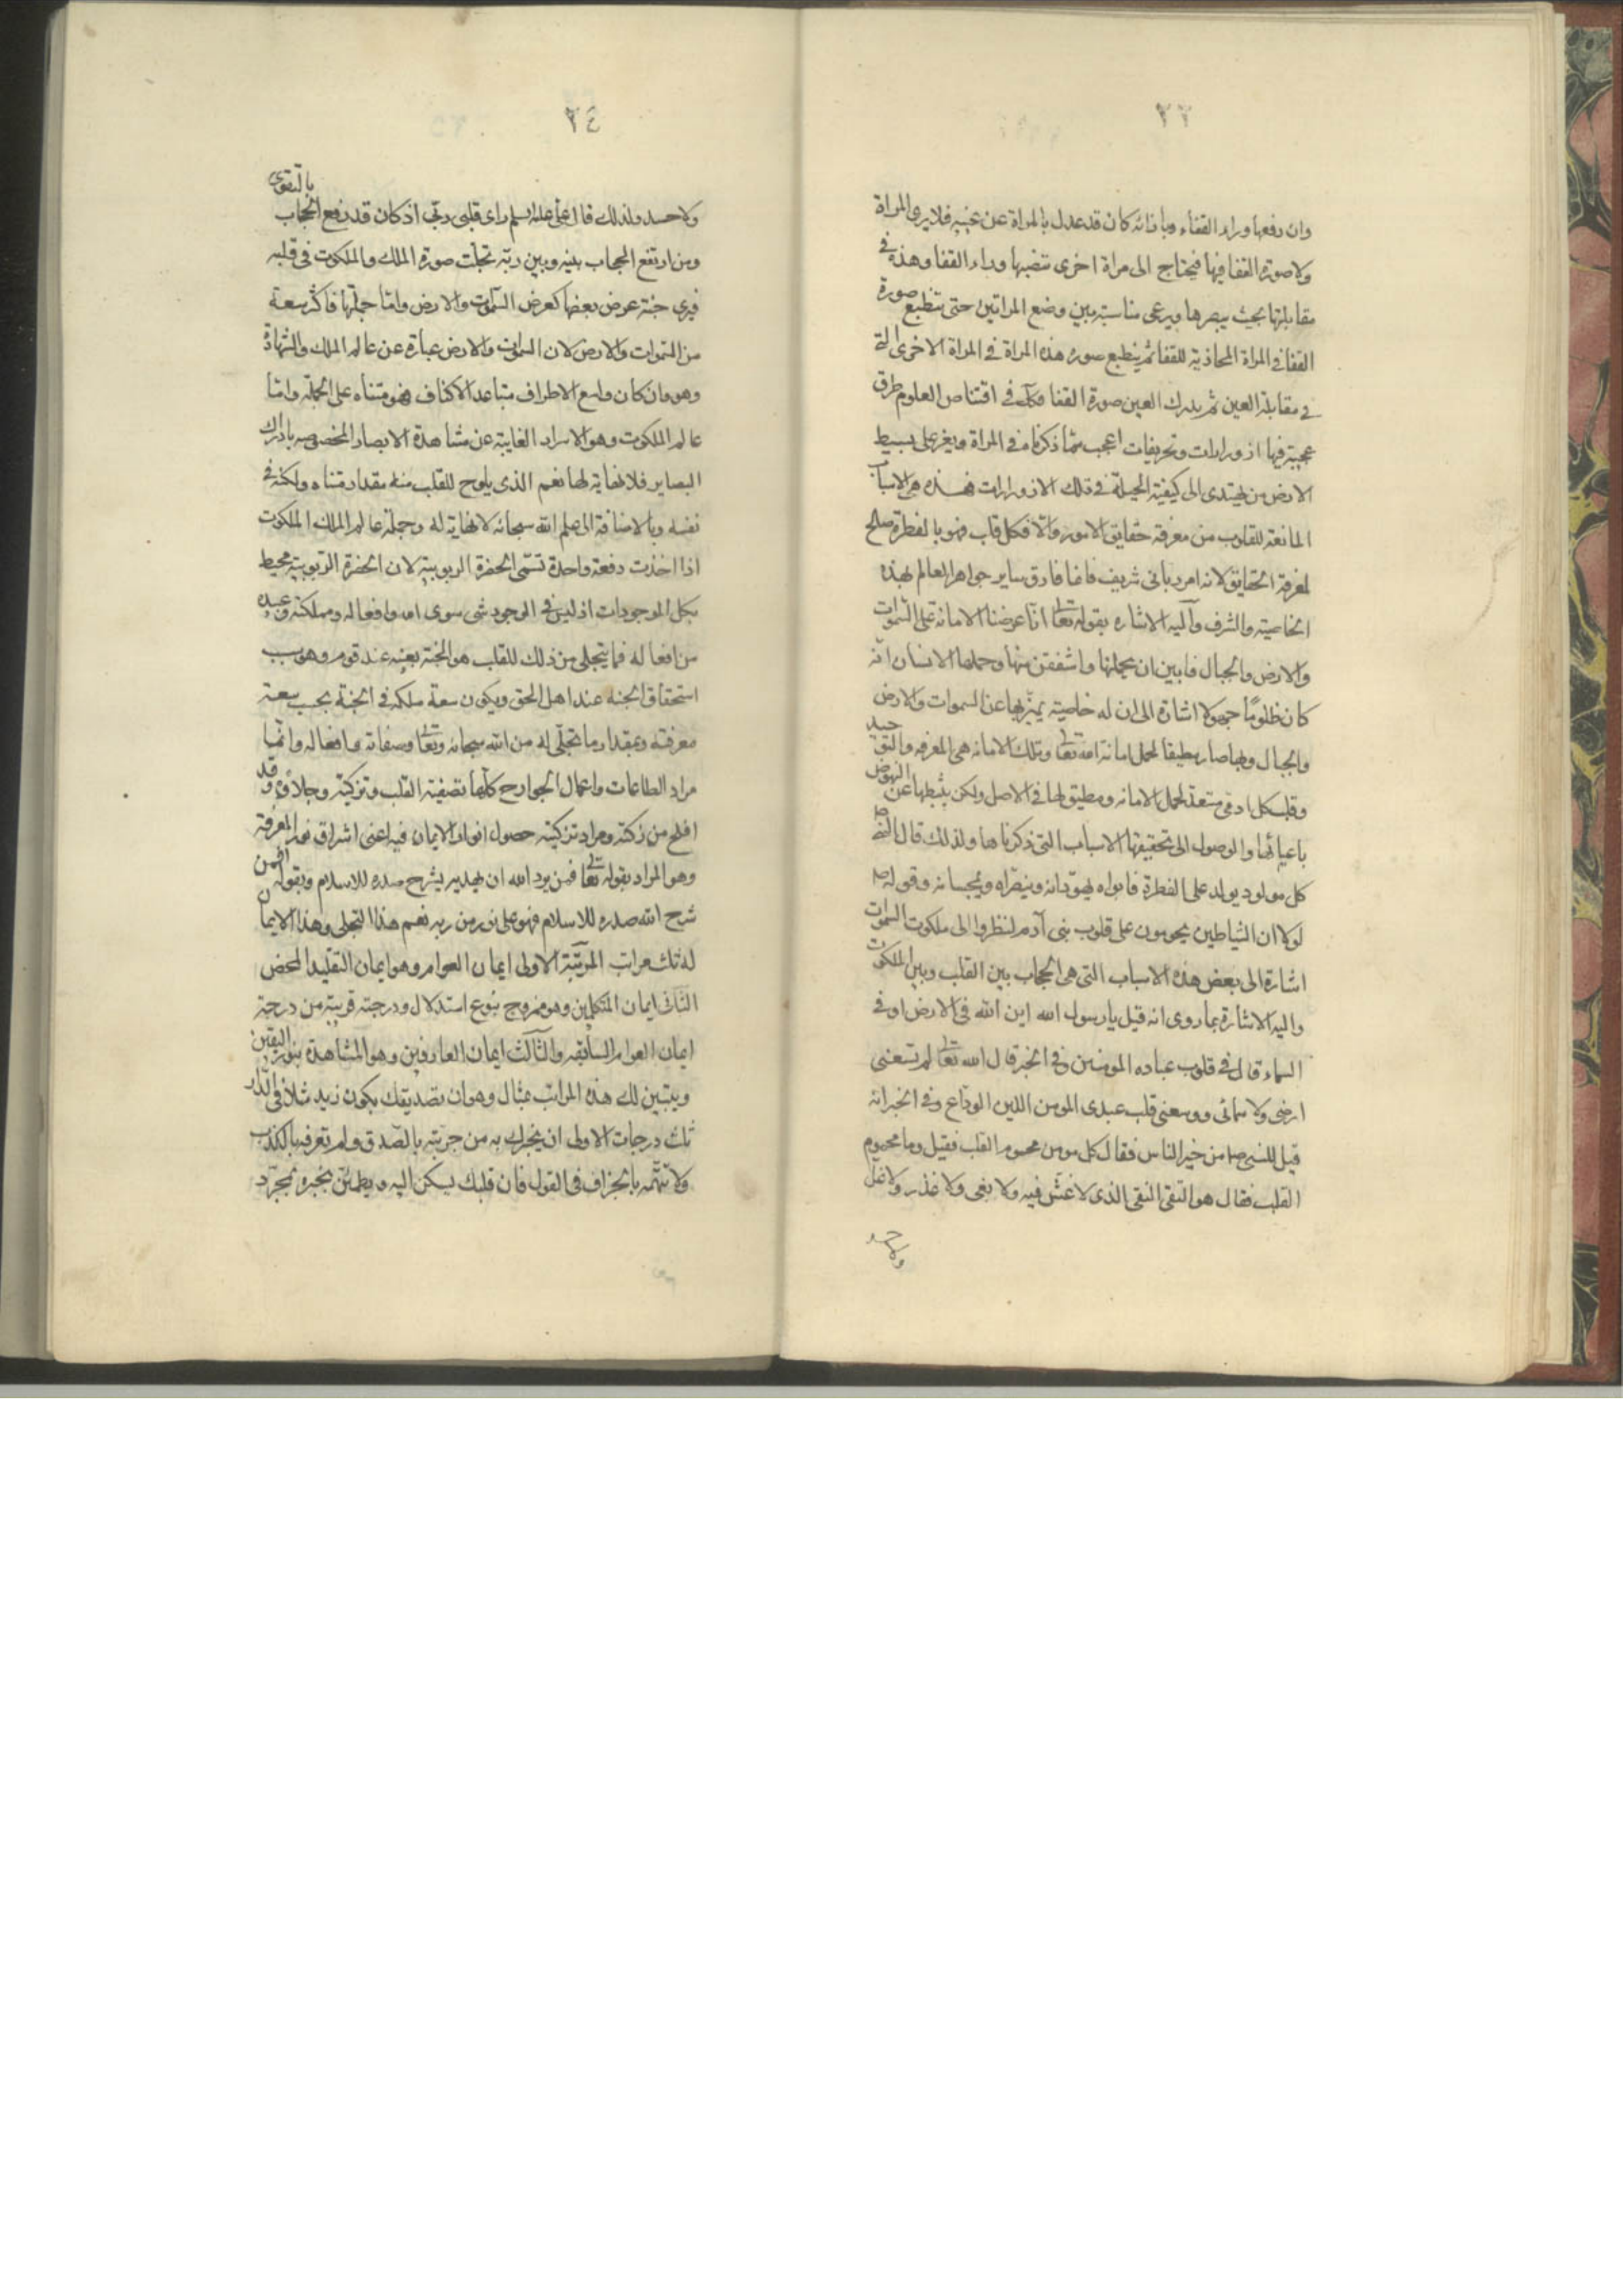 ٢٣
وان رفعها وراء القفاء وباذائه كان قد عدل بالمراة عن عينيه فلا يرى المراة
ولا صورة القفا فيها فيحتاج الى مراة اخرى ينصبها وراء القفا وهذه فى
مقابلتها بحيث يبصرها ويرعى مناسبة بين وضع المراتين حتى تنطبع صورة
القفا فى المراة المحاذية للقفا ثم ينطبع صورة هذه المراة فى المراة الاخرى التى
فى مقابلة العين ثم يدرك العين صورة القفا فكك فى اقتناص العلوم طرق
عجيبة فيها ازورارات وتحريفات اعجب مما ذكرناه فى المراة ويعز على بسيط
الارض من يهتدى الى كيفية الحيلة فى تلك الازورارات فهذه هى الاسباب
المانعة للقلوب من معرفة حقايق الامور والا فكل قلب فهو بالفطرة صالح
لمعرفة الحقايق لانه امر ربانى شريف فانما فارق ساير جواهر العالم بهذه
الخاصية والشرف واليه الاشاره بقوله تعا انا عرضنا الامانة على السموات
والارض والجبال فابين ان يحملنها واشفقن منها وحملها الانسان انه
كان ظلوما جهولا اشارة الى ان له خاصية يميز بها عن السموات والارض
والجبال وبها صار مطيقا لحمل امانة الله تعا وتلك الامانه هى المعرفه والتوحيد
وقلب كل ادمى مستعد لحمل الامانه ومطيق لها فى الاصل ولكن يثبطها عن النهوض
باعبائها والوصول الى تحقيقها الاسباب التى ذكرناها ولذلك قال النبى ص
كل مولود يولد على الفطرة فابواه يهودانه وينصراه ويمجسانه وقوله ص
لولا ان الشياطين يحومون على قلوب بنى آدم لنظروا الى ملكوت السموات
اشارة الى بعض هذه الاسباب التى هى الحجاب بين القلب وبين الملكوت
واليه الاشارة بما روى انه قيل يا رسول الله اين الله فى الارض او فى
السماء قال فى قلوب عباده المومنين وفى الخبر قال الله تعا لم تسعنى
ارضى ولا سمائى ووسعنى قلب عبدى المومن اللين الوداع وفى الخبر انه
قيل للنبى ص من خير الناس فقال كل مومن محموم القلب فقيل وما محموم
القلب فقال هو التقى النقى الذى لا غش فيه ولا بغى ولا غدر ولا غل
ولا حسد
٢٤
ولا حسد ولذلك قال على عليه السلم راى قلبى ربى اذ كان قد رفع الحجاب بالتقوى
ومن ارتفع الحجاب بينه وبين ربه تجلت صورة الملك والملكوت فى قلبه
فيرى جنة عرض بعضها كعرض السموات والارض واما جملتها فاكثر سعة
من السموات والارض لان السموات والارض عبارة عن عالم الملك والشهادة
وهو وان كان واسع الاطراف متباعد الاكناف فهو متناه على الجملة واما
عالم الملكوت وهو الاسرار الغايبة عن مشاهدة الابصار المخصوصه بادراك
البصاير فلا نهاية لها نعم الذى يلوح للقلب منه مقدار متناه ولكنه فى
نفسه وبالاضافة الى علم الله سبحانه لا نهاية له وجملة عالم الملك الملكوت
اذا اخذت دفعة واحدة تسمى الحضرة الربوبية لان الحضرة الربوبية محيط
بكل الموجودات اذ ليس فى الوجود شى سوى الله وافعاله ومملكته وعبيده
من افعاله فما يتجلى من ذلك للقلب هو الجنة بعينه عند قوم وهو سبب
استحقاق الجنه عند اهل الحق ويكون سعة ملكه فى الجنة بحسب سعة
معرفته وبمقدار ما تجلى له من الله سبحانه وتعا وصفاته وافعاله وانما
مراد الطاعات واعمال الجوارح كلها تصفية القلب وتزكيته وجلاؤه وقد
افلح من زكته ومراد تزكيته حصول انوار الايمان فيه اعنى اشراق نور المعرفة
وهو المراد بقوله تعا فمن يرد الله ان يهديه يشرح صدره للاسلام وبقوله افمن
شرح الله صدره للاسلام فهو على نور من ربه نعم هذا التجلى وهذا الايمان
له ثلث مراتب المرتبة الاولى ايمان العوام وهو ايمان التقليد المحض
الثانى ايمان المتكلمين وهو ممزوج بنوع استدلال ودرجته قريبة من درجة
ايمان العوام السابقه والثالث ايمان العارفين وهو المشاهدة بنور اليقين
ويتبين لك هذه المراتب بمثال وهو ان تصديقك بكون زيد مثلا فى الدار
ثلث درجات الاولى ان يخبرك به من جربته بالصدق ولم تعرفه بالكذب
ولا تتهمه بالجزاف فى القول فان قلبك يسكن اليه ويطمئن بخبره بمجرد